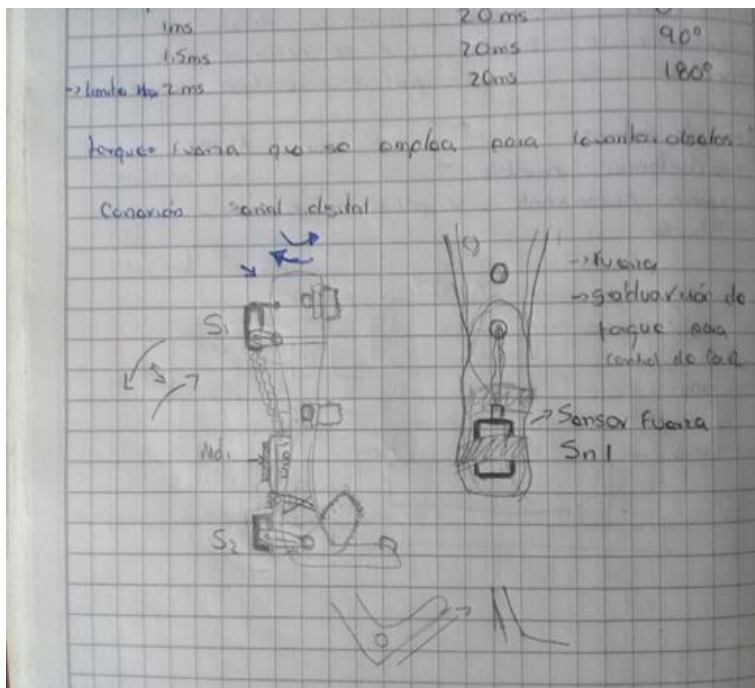 1ms 20ms
1.5ms 20ms 90º
→ limite 2ms 20ms 180º
torque fuerza que se emplea para levantar objetos
Conexión serial digital
S1
→ fuerza
→ graduación de
torque para
control de
→ Sensor Fuerza
Sn1
Md1
S2